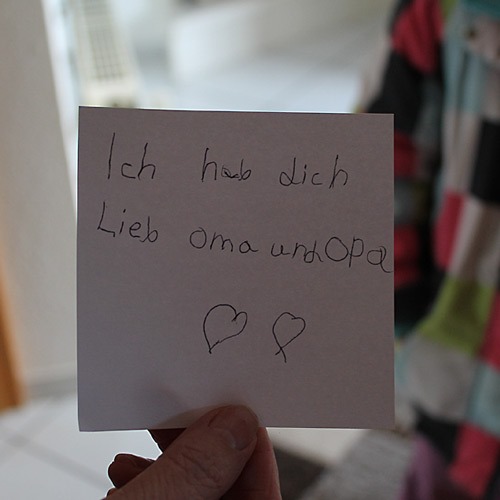 Ich hab dich
Lieb oma und Opa